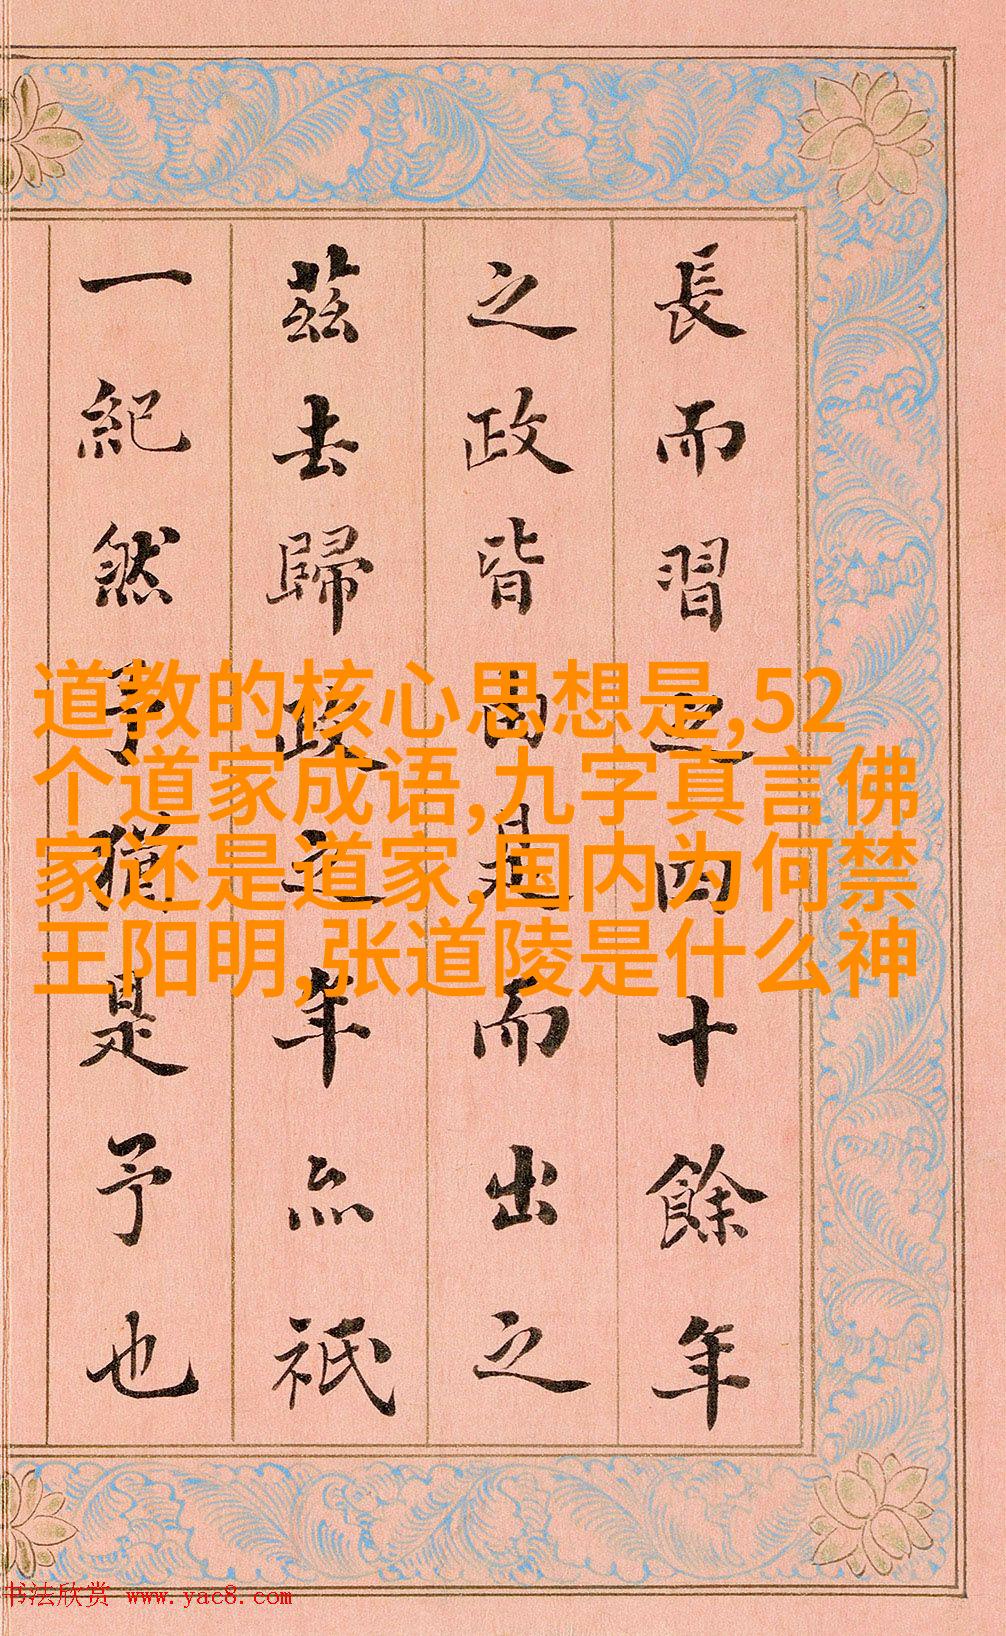 長而習之四十餘年
之政皆由是而出之
茲去歸政之年亦祇
一紀然予猶是予也
道教的核心思想是,52
个道家成语,九字真言佛
家还是道家,国内为何禁
王阳明,张道陵是什么神
书法欣赏 www.yac8.com